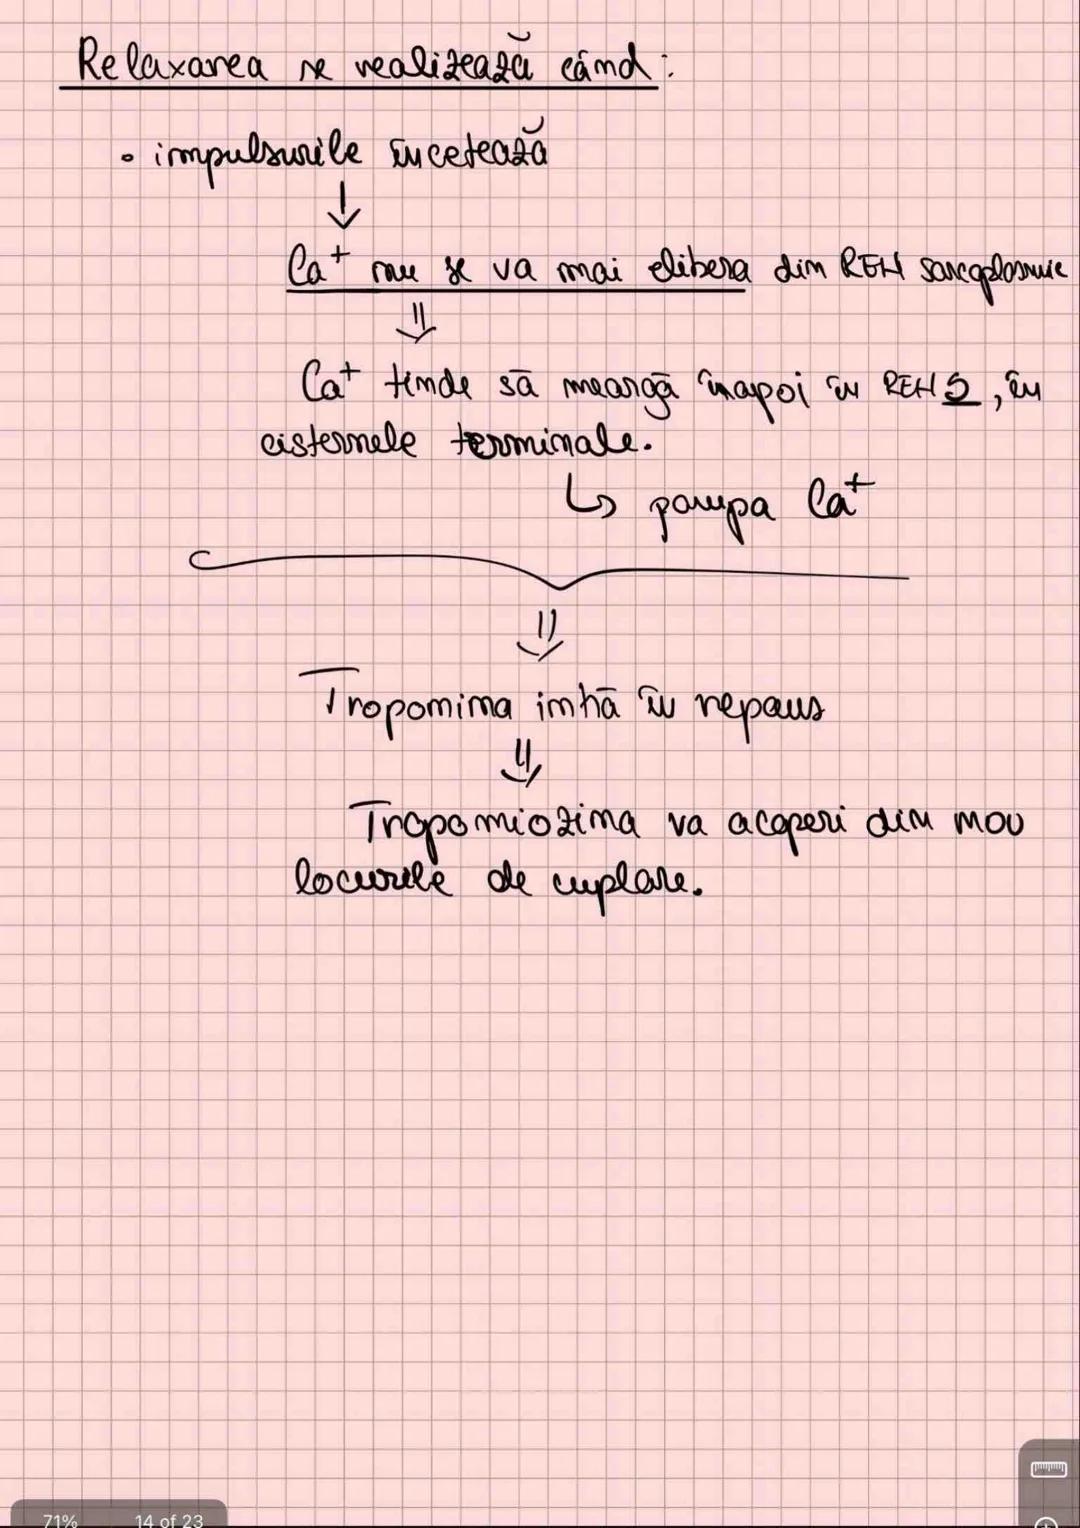 Relaxarea se realizează când:
• impulsurile încetează
↓
Ca⁺ nu se va mai elibera din REN sarcoplasmic
⇓
Ca⁺ tinde să meargă înapoi în RENS, în
cisternele terminale.
↳ pompa Ca⁺
⇓
Troponina intră în repaus
⇓
Tropomiozina va acoperi din nou
locurile de cuplare.
71% 14 of 23